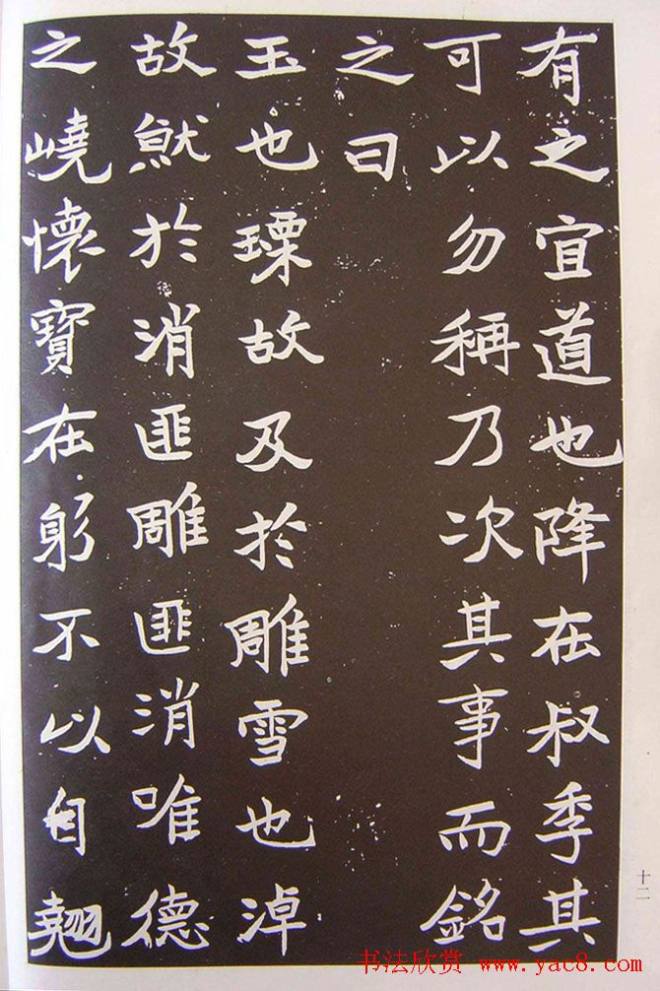 有之宜道也降在叔季其
可以勿稱乃次其事而銘
之曰
玉也瑮故及於雕雪也淖
故然於消匪雕匪消唯德
之嶢懷寶在躬不以自翹
十二
书法欣赏 www.yac8.com